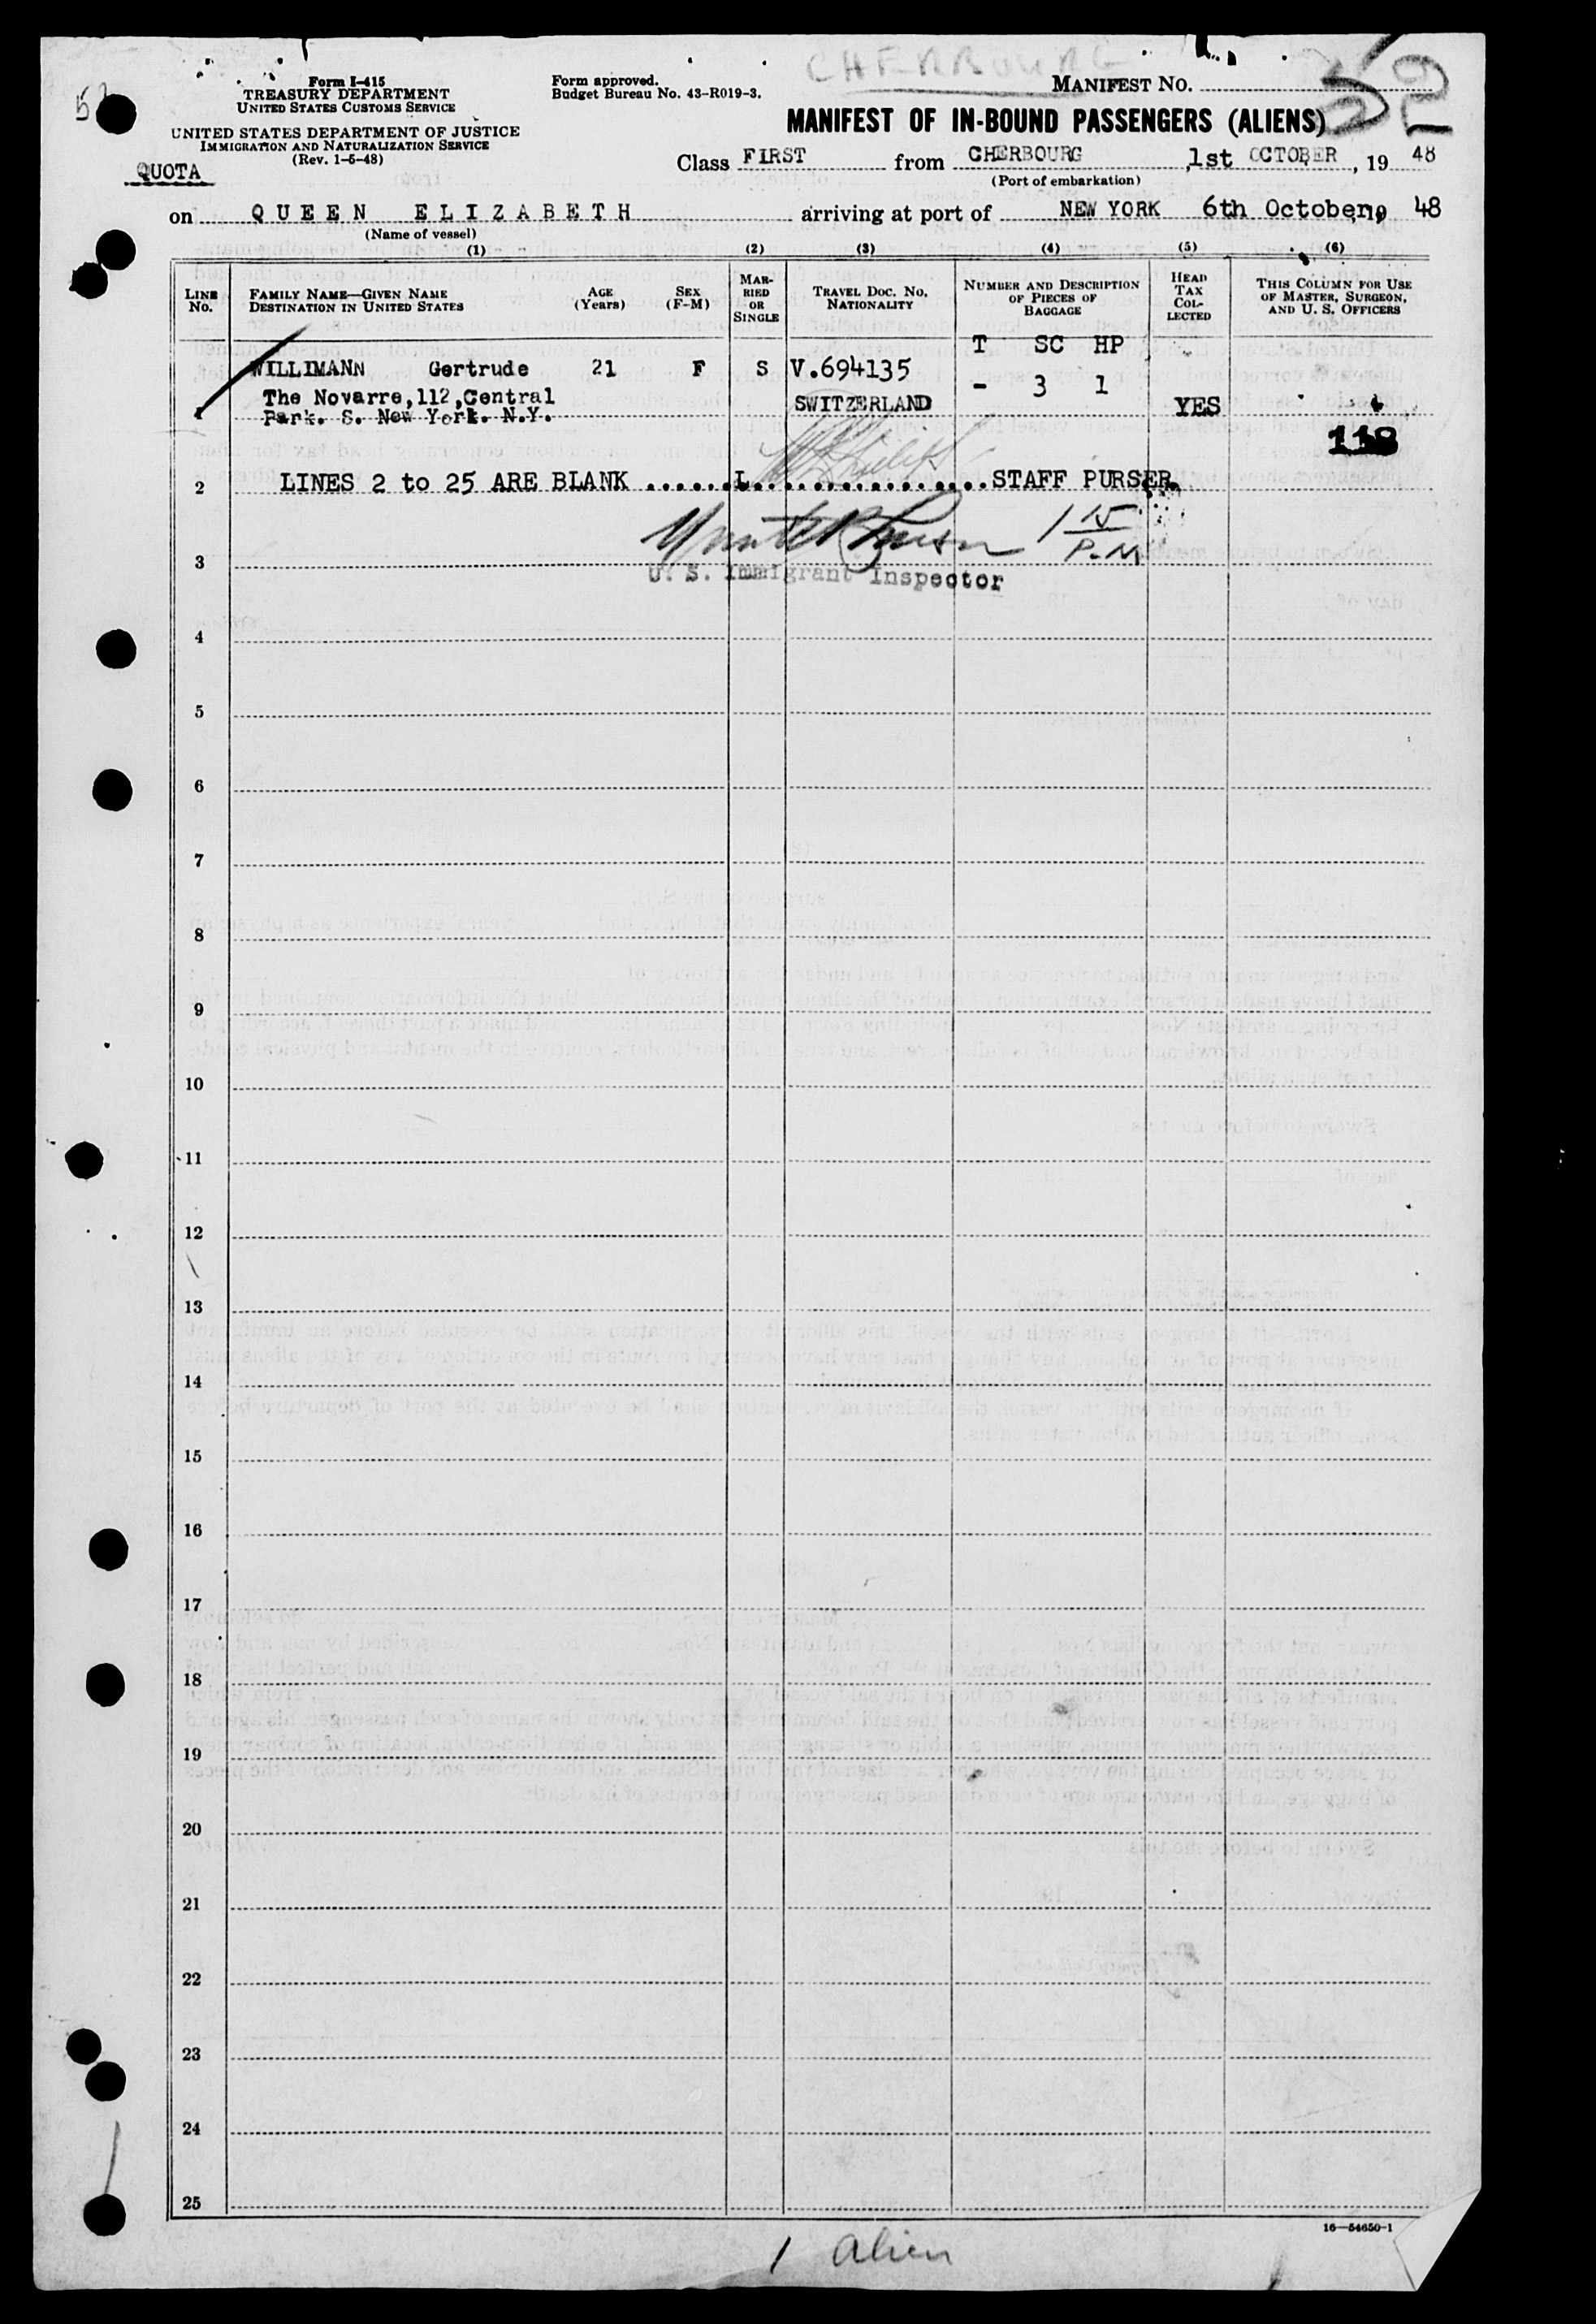 CHERBOURG
Form I-415
TREASURY DEPARTMENT
UNITED STATES CUSTOMS SERVICE
Form approved.
Budget Bureau No. 43-R019-3.
MANIFEST NO.
UNITED STATES DEPARTMENT OF JUSTICE
IMMIGRATION AND NATURALIZATION SERVICE
(Rev. 1-5-48)
MANIFEST OF IN-BOUND PASSENGERS (ALIENS)
QUOTA
Class FIRST from CHERBOURG, 1st OCTOBER, 19 48
(Port of embarkation)
on QUEEN ELIZABETH arriving at port of NEW YORK 6th October, 19 48
(Name of vessel)
(1) (2) (3) (4) (5) (6)
LINE No. FAMILY NAME—GIVEN NAME DESTINATION IN UNITED STATES AGE (Years) SEX (F-M) MARRIED OR SINGLE TRAVEL DOC. NO. NATIONALITY NUMBER AND DESCRIPTION OF PIECES OF BAGGAGE HEAD TAX COLLECTED THIS COLUMN FOR USE OF MASTER, SURGEON, AND U. S. OFFICERS
T SC HP
WILLIMANN Gertrude 21 F S V.694135
- 3 1
The Novarre,112,Central
1 Park. S. New York. N.Y. SWITZERLAND YES
118
2 LINES 2 to 25 ARE BLANK ................ STAFF PURSER.
1 15 P.M
3 U. S. Immigrant Inspector
4
5
6
7
8
9
10
11
12
13
14
15
16
17
18
19
20
21
22
23
24
25
16—54650-1
1 alien